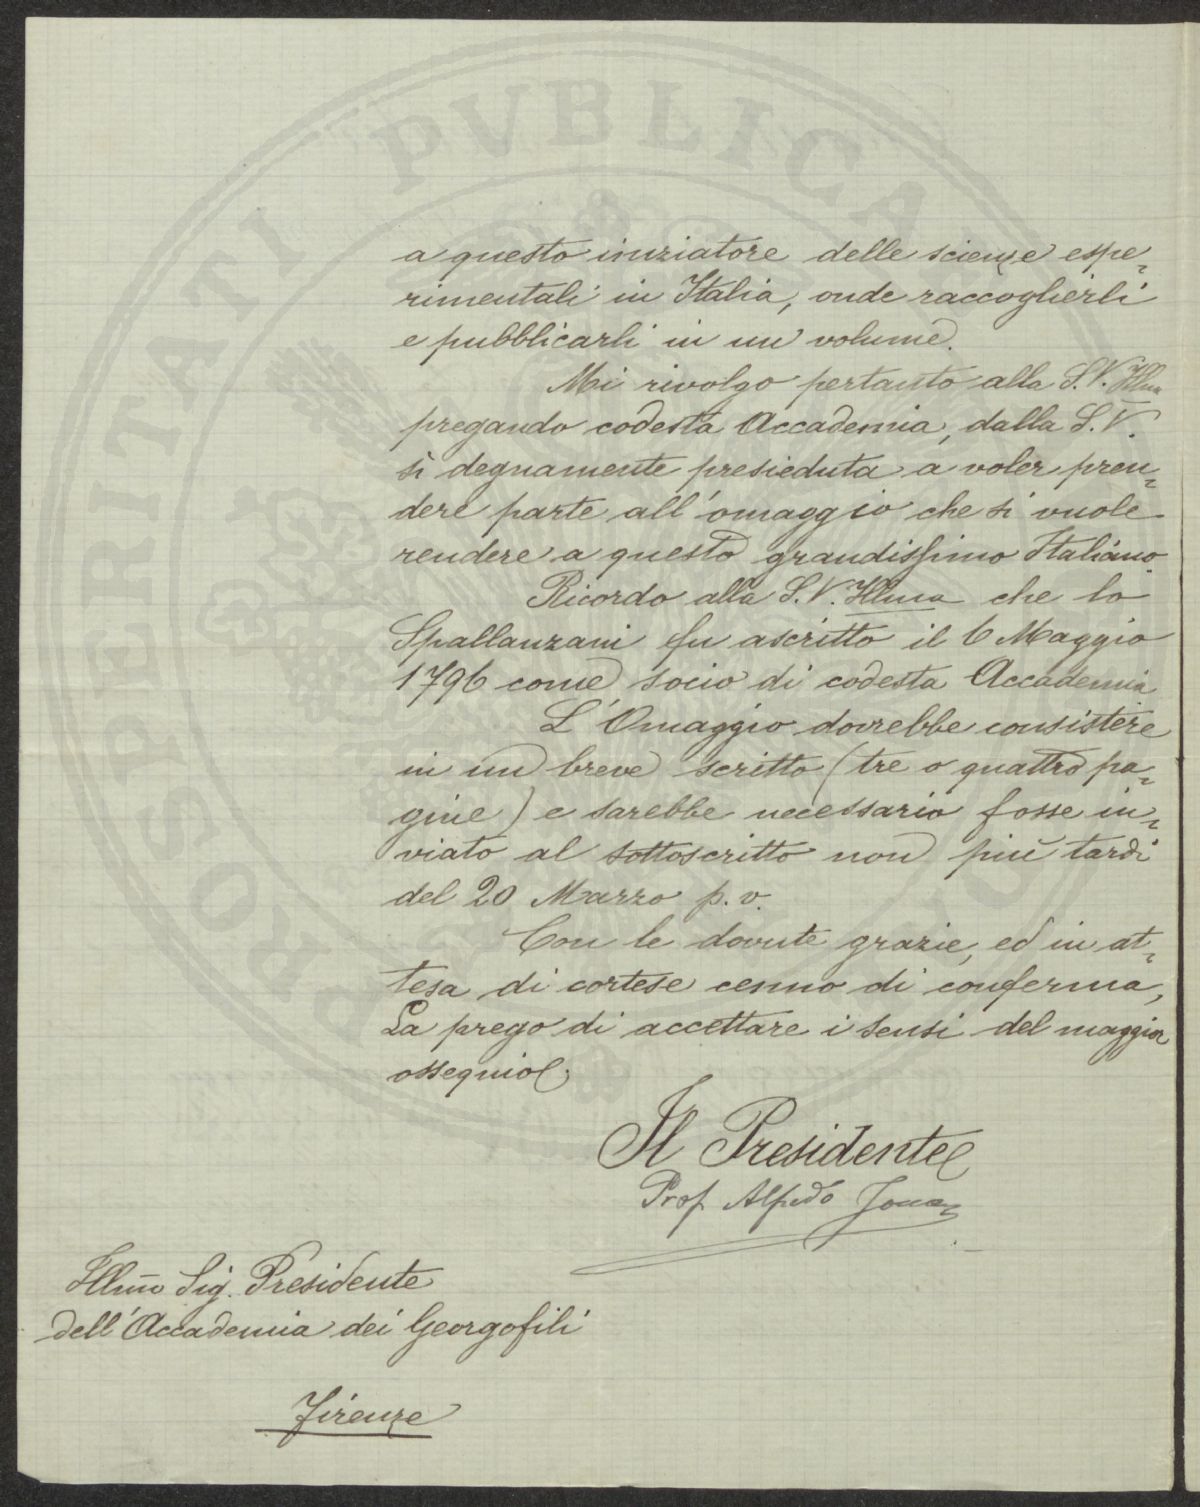 a questo iniziatore delle scienze espe-
rimentali in Italia, onde raccoglierli
e pubblicarli in un volume.
Mi rivolgo pertanto alla S.V. Illma
pregando codesta Accademia, dalla S.V.
sì degnamente presieduta a voler pren-
dere parte all'omaggio che si vuole
rendere a questo grandissimo Italiano.
Ricordo alla S.V. Illma che lo
Spallanzani fu ascritto il 6 Maggio
1796 come socio di codesta Accademia
L'Omaggio dovrebbe consistere
in un breve scritto (tre o quattro pa-
gine) e sarebbe necessario fosse in-
viato al sottoscritto non più tardi
del 20 Marzo p.v.
Con le dovute grazie, ed in at-
tesa di cortese cenno di conferma,
La prego di accettare i sensi del maggior
ossequio.
Il Presidente
Prof Alfredo Jona
Illmo Sig. Presidente
dell'Accademia dei Georgofili
Firenze
PROSPERITATI PVBLICAE